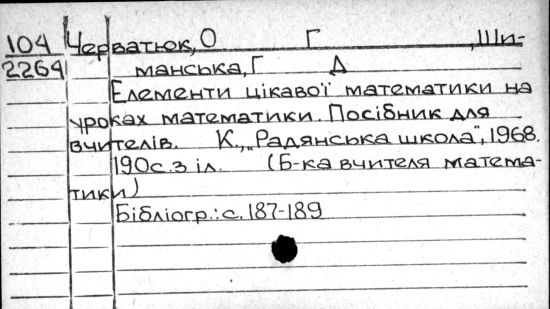 104 Черватюк, О Г , Ши-
2264 манська, Г Д
Елементи цікавої математики на
уроках математики. Посібник для
вчителів. К., „Радянська школа", 1968.
190с. з іл. (Б-ка вчителя матема-
тики)
Бібліогр.: с. 187-189